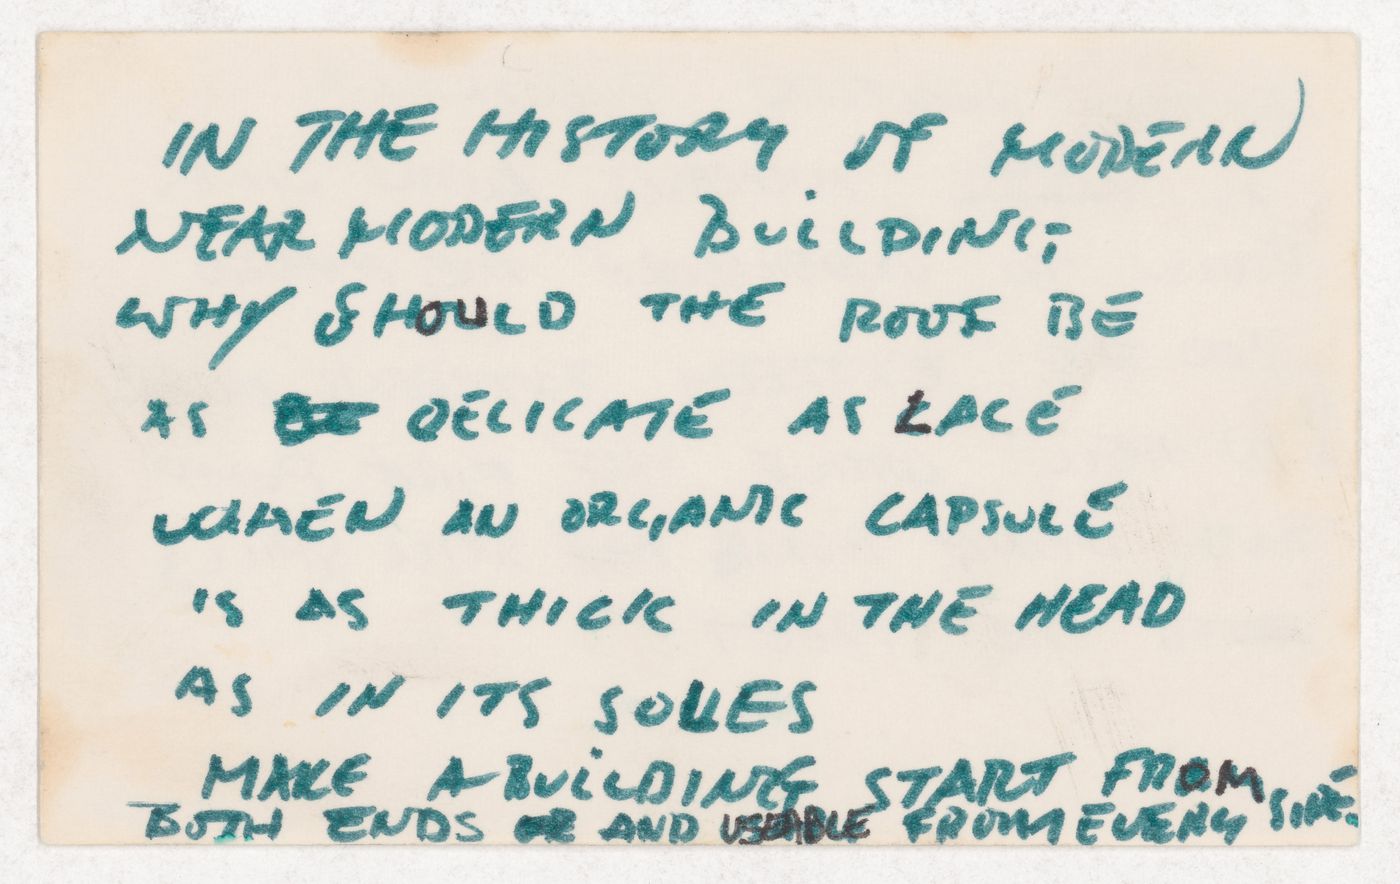 IN THE HISTORY OF MODERN
NEAR MODERN BUILDING
WHY SHOULD THE ROOF BE
AS DELICATE AS LACE
WHEN AN ORGANIC CAPSULE
IS AS THICK IN THE HEAD
AS IN ITS SOLES
MAKE A BUILDING START FROM
BOTH ENDS OR AND USEABLE FROM EVERY SIDE.